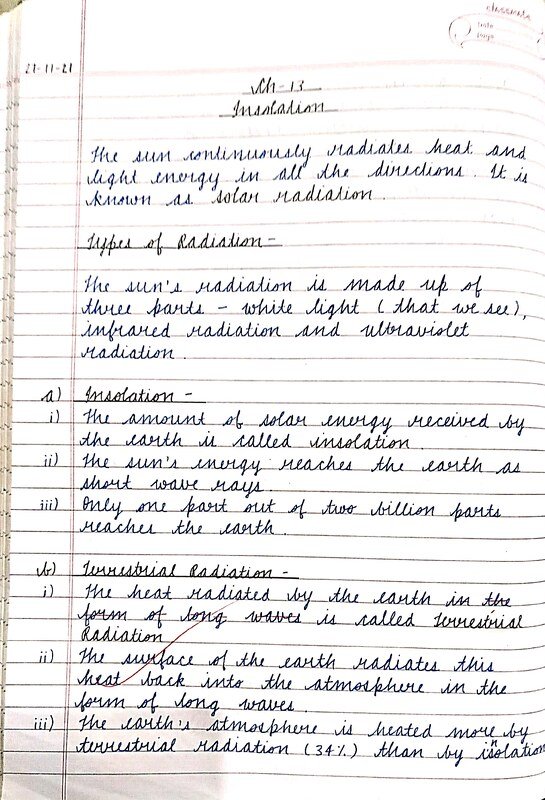 classmate
Date
Page
21-11-21
Ch-13
Insolation
The sun continuously radiates heat and
light energy in all the directions. It is
known as solar radiation.
Types of Radiation-
The sun's radiation is made up of
three parts - white light (that we see),
infrared radiation and ultraviolet
radiation.
a) Insolation -
i) The amount of solar energy received by
the earth is called insolation.
ii) The sun's energy reaches the earth as
short wave rays.
iii) Only one part out of two billion parts
reaches the earth.
b) Terrestrial Radiation -
i) The heat radiated by the earth in the
form of long waves is called Terrestrial
Radiation
ii) The surface of the earth radiates this
heat back into the atmosphere in the
form of long waves.
iii) The earth's atmosphere is heated more by
terrestrial radiation (34%) than by insolation